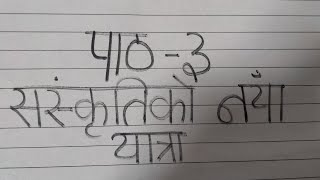 पाठ-३
संस्कृतिको नयाँ
यात्रा